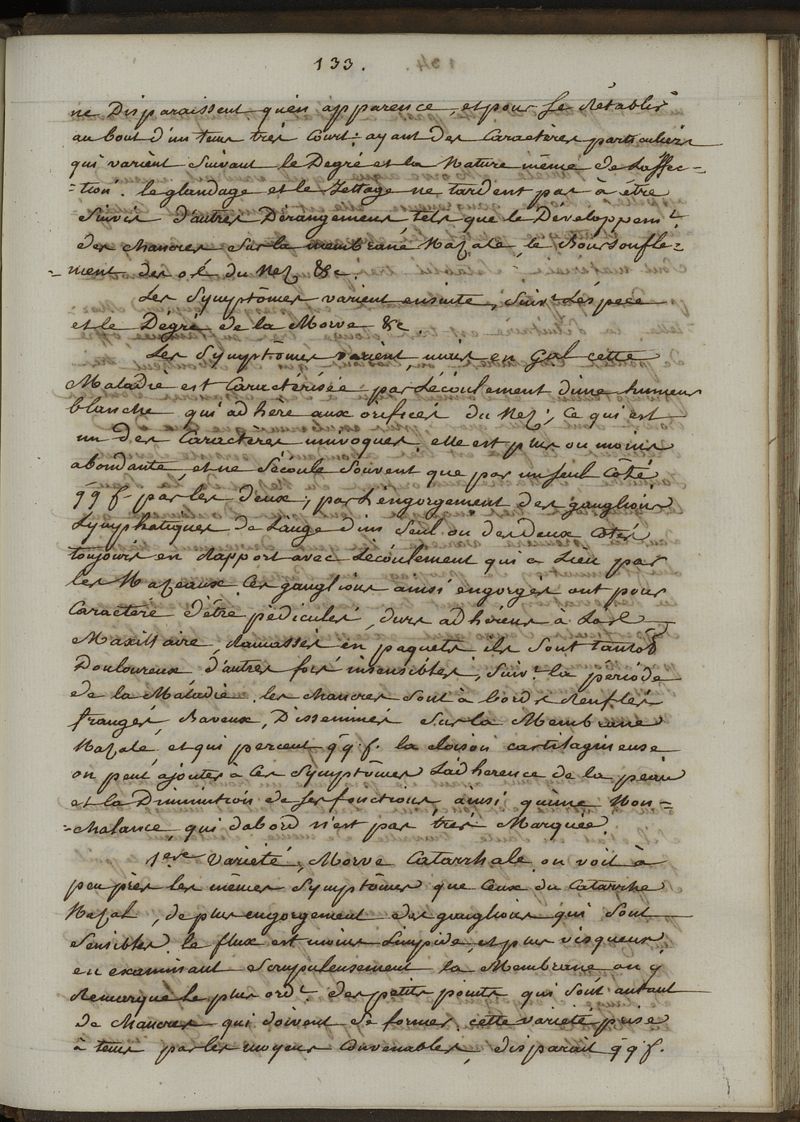 133.
ne Disparaissent qu'en apparence, et pour se Rétablir
au bout d'un tems très Court: ayant des Caractères particuliers
qui varient Suivant le Degré et la Nature même de L'affec-
-tion. le glandage et le Jettage ne tardent pas à être
Suivis d'autres Dérangemens, tels que le Développemt.
des chancres Sur la membrane Nazale, le Boursoufle-
-ment des os du Nez &c.
Les Symptômes varient ensuite, Suivt. L'éspece
et le Dégré de la Morve &c.
Les Symptômes varient, mais en Gal cette
Maladie est Caractérisée par L'écoulement d'une humeur
blanche qui adhère aux orifices du Nez; Ce qui est
un des Caractères univoques. elle est plus ou moins
abondante, et ne S'écoule Souvent que par un Seul Côté
qq f. par les deux; par L'engorgement des ganglions
Lymphatiques de L'auge d'un Seul ou des deux Côtés
toujours en Rapport avec L'écoulement qui a Lieu par
les Nazeaux. Ces ganglions ainsi engorgés ont pour
Caractere d'être pédiculés, durs adhérens à L'os
Maxillaire, Ramassés en paquets ils Sont tantôt
Douloureux d'autres fois insensibles, Suivt. la période
de la Maladie. les chancres Sont à bords Renflés
frangés, Baveux, Disséminés Sur la Membrane
Nazale, et qui percent qq. f. la cloison cartilagineuse
on peut ajouter à Ces Symptômes L'adherence de la peau
et la Diminution de Ses fonctions ainsi qu'une Non-
-chalance qui d'abord n'est pas très Marquée.
1ere Varieté, Morve Catarrhale on voit à
peu près les mêmes Symptômes que Ceux du Catarrhe
Nazal, de plus engorgement des ganglions qui Sont
Sensibles. le flux est moins Limpide, et plus visqueux
en examinant Scrupuleusement la Membrane on y
Remarque le plus ordt. des petits points qui Sont autant
de Chancres qui doivent Se former. cette varieté prise
à tems par les moyens Convenables, disparait qq f.